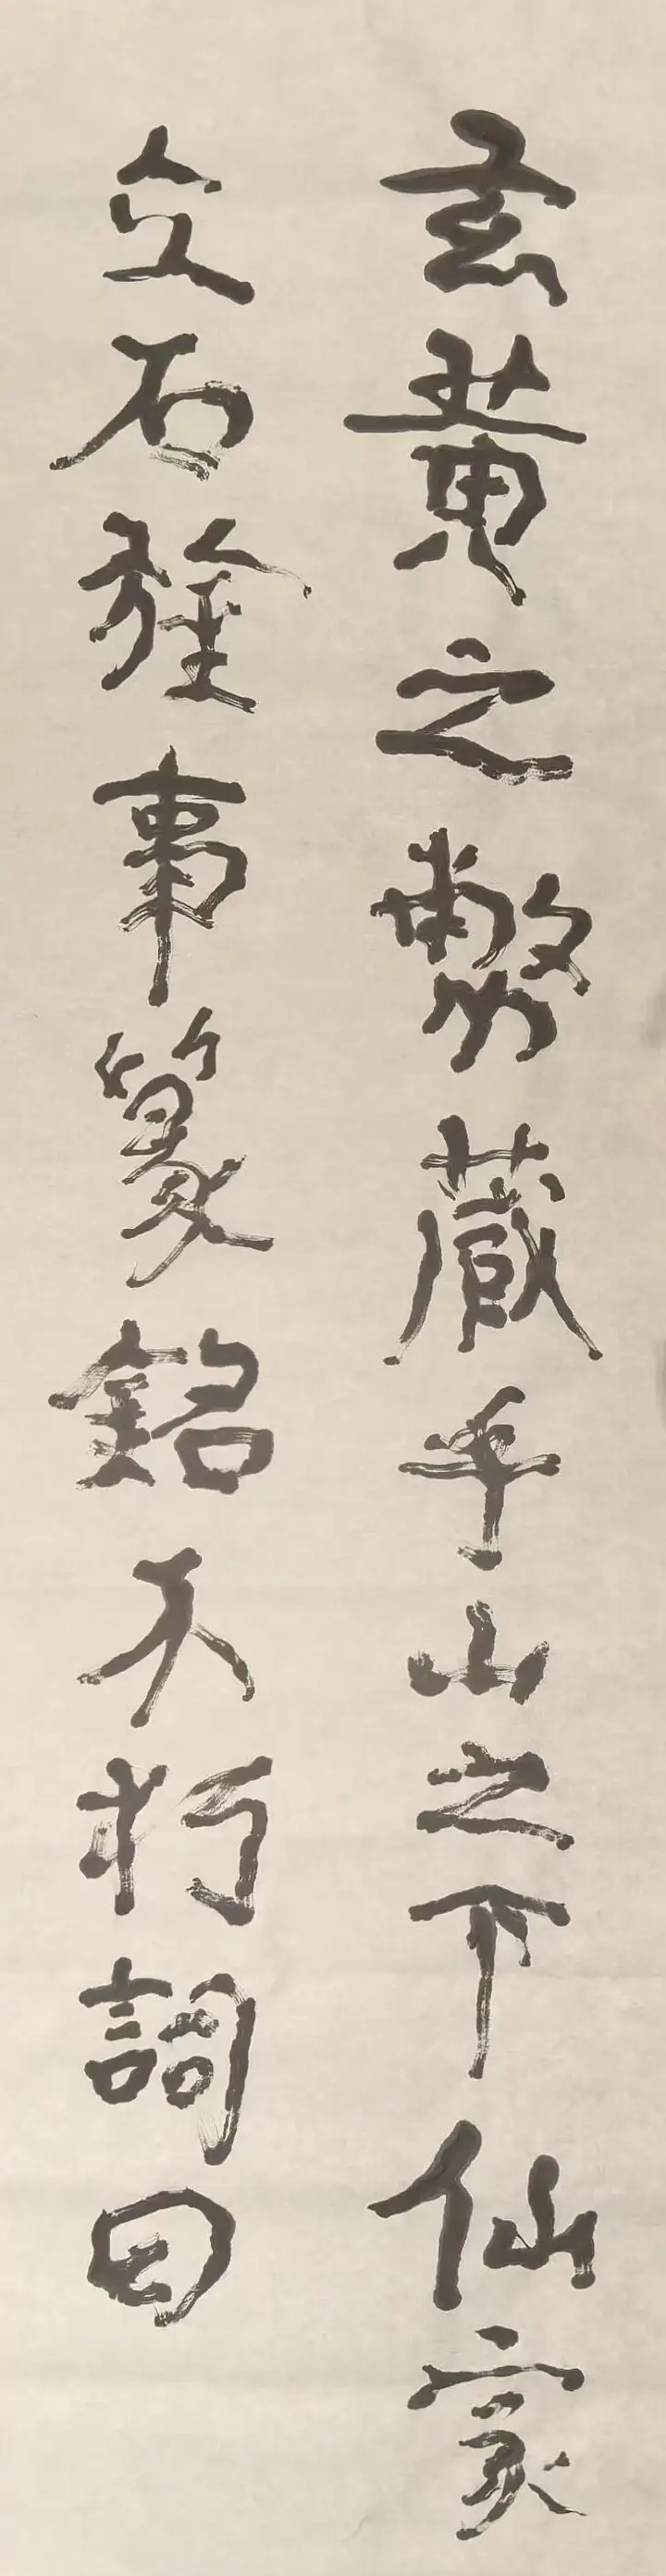 玄黄之幣藏乎山之下仙家
立石旌事篆銘不朽詞曰